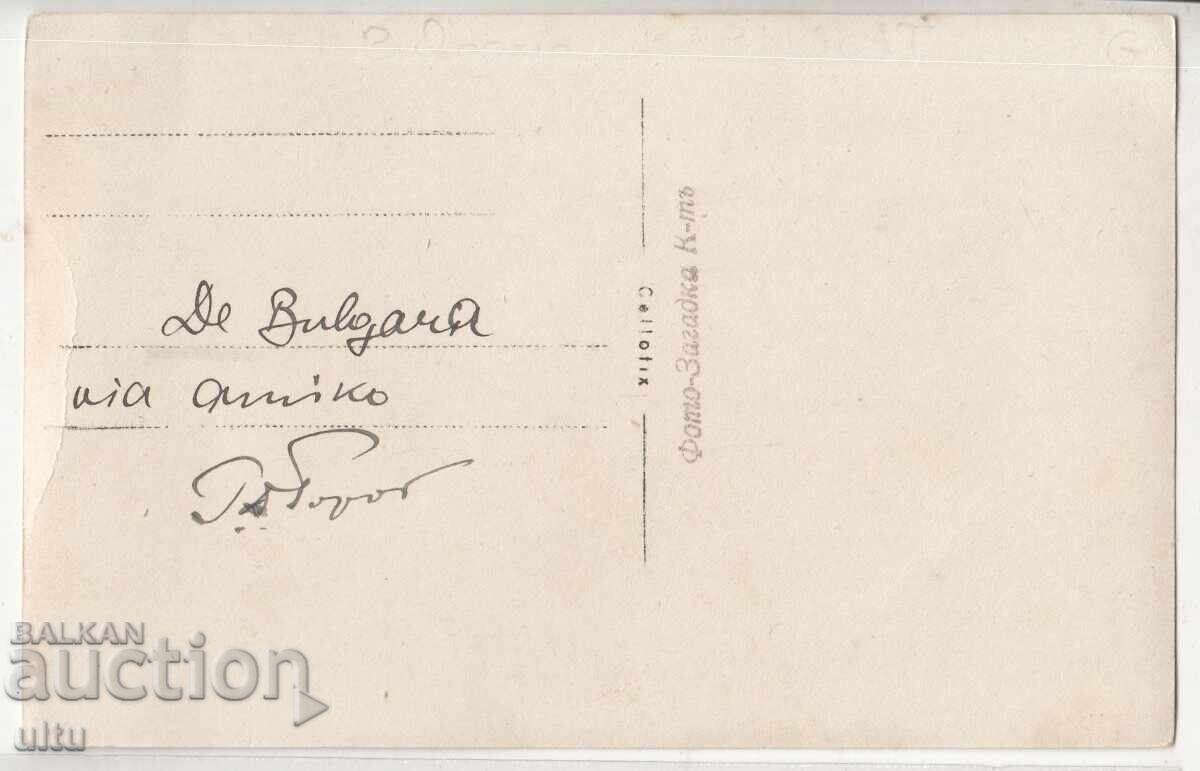 De Bulgaria
via amiko
Cellofix
Фото-Загадка К-тъ
BALKAN
auction
ultu